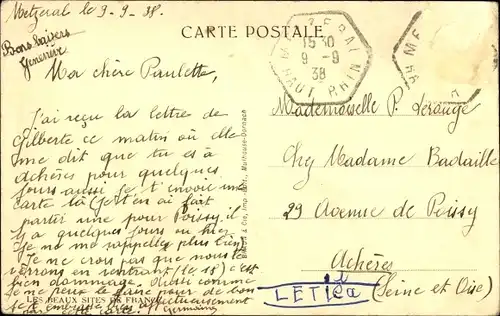 Metzeral le 9-9-38.
Bons baisers
Geneviève
CARTE POSTALE
METZERAL
15 30
9 - 9
38
HAUT RHIN
Ma chère Paulette,
J'ai reçu la lettre de
Gilberte ce matin où elle
me dit que tu es à
Achères pour quelques
jours aussi je t'envoie une
carte là
partir une pour Poissy il
y a quelques jours ou hier
je ne me rappelles plus bien
Je ne crois pas que nous te
verrons en rentrant (le 18) c'est
bien dommage. Aussi comme
je ne peux le faire pour de bon
je t'embrasse affectueusement
par carte. Germaine
LES BEAUX SITES DE FRANCE
BRAUN & Cie, Imp.-Édit., Mulhouse-Dornach
Mademoiselle P. Lerange
Chez Madame Badaille
29 Avenue de Poissy
Achères
(Seine et Oise)